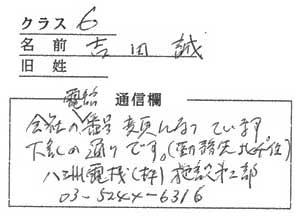 クラス 6
名前 吉田 誠
旧姓
通信欄
会社の電話番号 変更になっています。
下記の通りです。(勤務先
八洲電機(株) 施設第二部
03-5244-6316